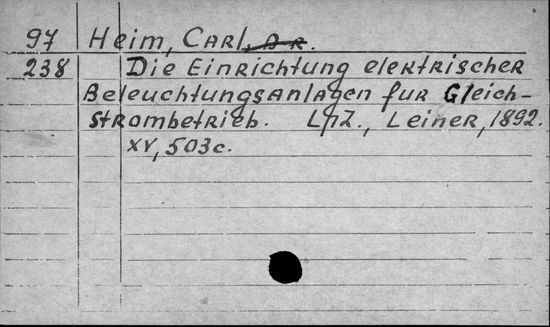 97 Heim, Carl, DR.
238 Die Einrichtung elektrischer
Beleuchtungsanlagen fur Gleich-
strombetrieb. Lpz., Leiner, 1892.
XV, 503c.